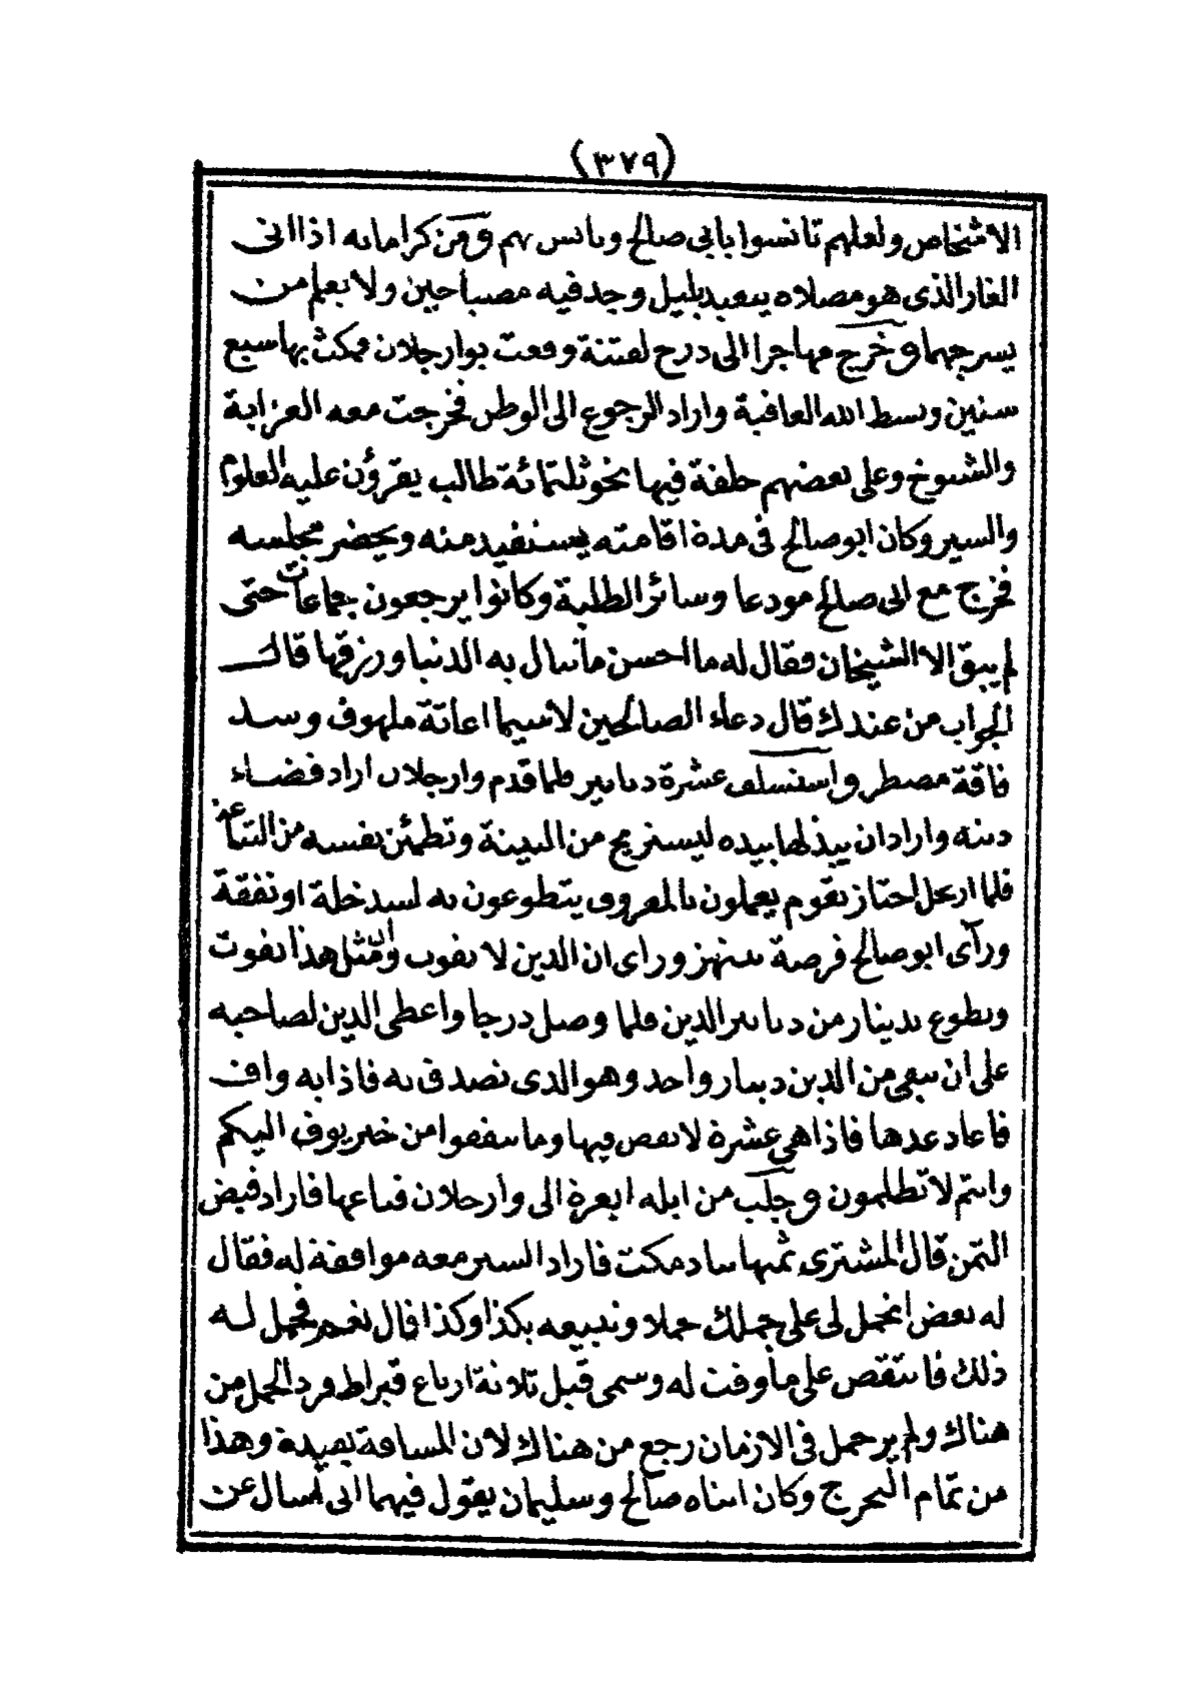 (٣٧٩)
الاشخاص ولعلهم تانسوا بابي صالح ويانس بهم ومن كراماته اذا اتى
الغار الذى هو مصلاه يتعبد بليل وجد فيه مصباحين ولا يعلم من
يسرجهما وخرج مهاجرا الى درج لفتنة وقعت بوارجلان فمكث بها سبع
سنين وبسط الله العافية واراد الرجوع الى الوطن فخرجت معه العزابة
والشيوخ وعلى بعضهم حلقة فيها نحو ثلثمائة طالب يقرؤن عليه العلوم
والسير وكان ابو صالح فى مدة اقامته يستفيد منه ويحضر مجلسه
فخرج مع ابى صالح مودعا وسائر الطلبة وكانوا يرجعون جماعات حتى
لم يبق الا الشيخان فقال له ما احسن ما تنال به الدنيا ورزقها قال
الجواب من عندك قال دعاء الصالحين لاسيما اعانة ملهوف وسد
فاقة مضطر واستسلف عشرة دنانير فلما قدم وارجلان اراد قضاء
دينه واراد ان يبذلها بيده ليستريح من البينة وتطمئن نفسه من التباعة
فلما ارتحل اجتاز بقوم يعملون بالمعروف يتطوعون به لسد خلة او نفقة
ورآى ابو صالح فرصة تنتهز وراى ان الدين لا يفوت وان مثل هذا يفوت
وتطوع بدينار من دنانير الدين فلما وصل درجا واعطى الدين لصاحبه
على ان يبقى من الدين دينار واحد وهو الذى تصدق به فاذا به واف
فاعاد عدها فاذا هى عشرة لا نقص فيها وما تنفقوا من خير يوف اليكم
وانتم لا تظلمون وجلب من ابله ابعرة الى وارجلان فباعها فاراد قبض
الثمن قال المشترى ثمنها بتادمكت فاراد السير معه موافقة له فقال
له بعض اتحمل لى على جملك حملا وتبيعه بكذا وكذا قال نعم فحمل له
ذلك فانتقص على ما وقت له وسمى قبل ثلاثة ارباع قيراط فرد الحمل من
هناك ولم ير حمل فى الازمان رجع من هناك لان المسافة بعيدة وهذا
من تمام التحرج وكان ابناه صالح وسليمان يقول فيهما انى أسال عن